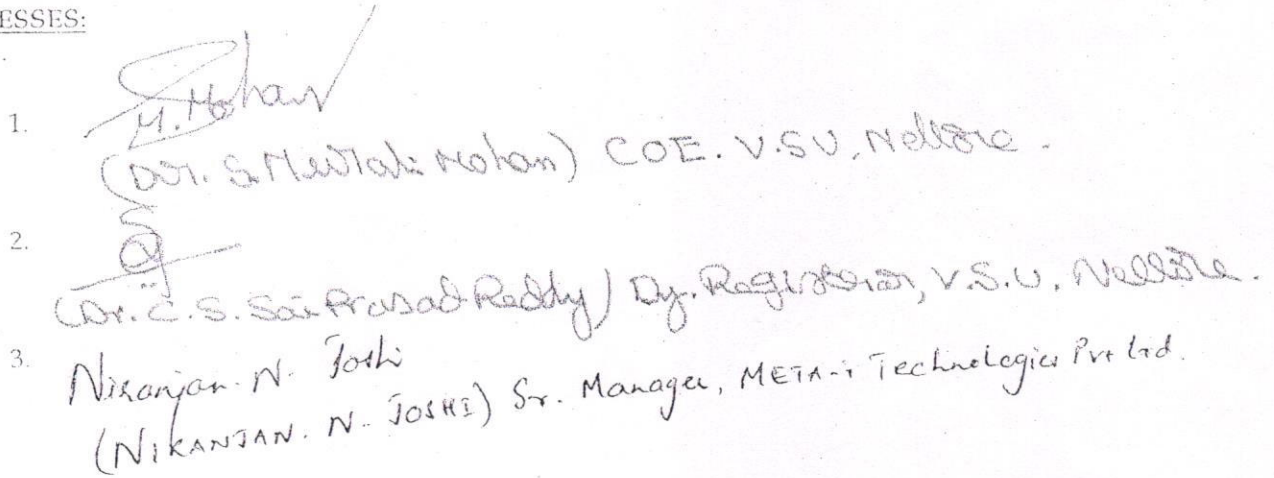 ESSES:
1. M. Mohan
(Dr. S. Murali Mohan) COE. V.S.U, Nellore.
2.
(Dr. C. S. Sai Prasad Reddy) Dy. Registrar, V.S.U, Nellore.
3. Niranjan. N. Joshi
(NIRANJAN. N. JOSHI) Sr. Manager, META-i Technologies Pvt Ltd.